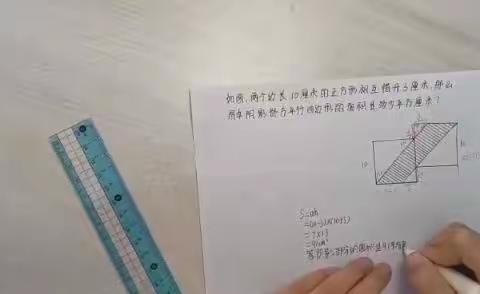 如图,两个边长10厘米的正方形相互错开3厘米,那么
图中阴影部分平行四边形的面积是多少平方厘米?
10
S=ah
=(10-3)×(10+3)
=7×13
=91cm²
答:阴影部分的面积是91平方厘